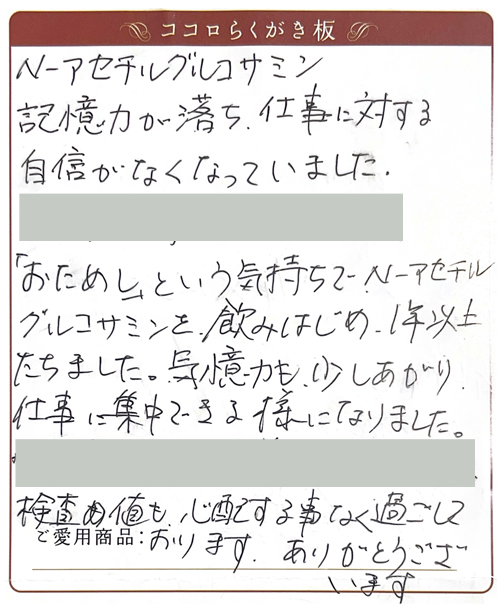 ココロらくがき板
N-アセチルグルコサミン
記憶力が落ち、仕事に対する
自信がなくなっていました.
「おためし」という気持ちで N-アセチル
グルコサミンを、飲みはじめ、1年以上
たちました。記憶力も、少しあがり、
仕事に集中できる様になりました。
検査の値も、心配する事なく過ごして
ご愛用商品:おります. ありがとうござ
います